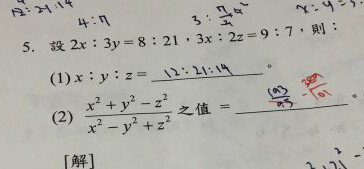 12:21:14
4:7
3:
x:y=
5. 設 2x：3y＝8：21，3x：2z＝9：7，則：
(1) x：y：z＝ 12:21:14 。
(2) \frac{x^2+y^2-z^2}{x^2-y^2+z^2} 之值 ＝ 。
[解]